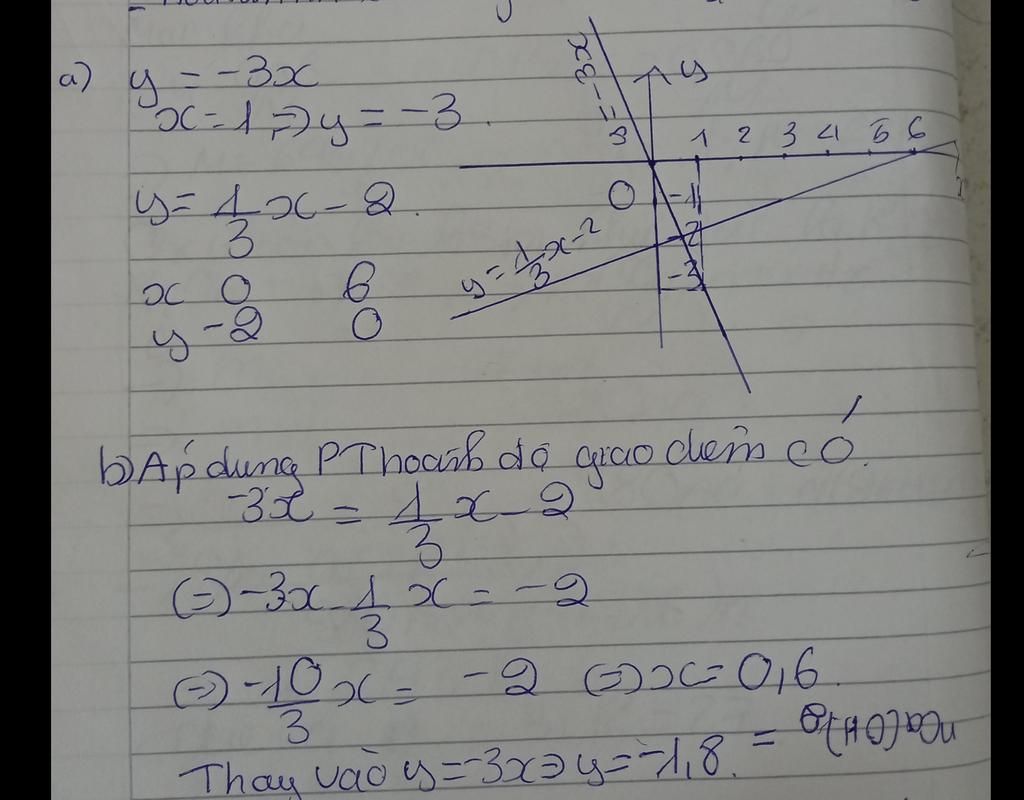 a) y = -3x
x=1 => y = -3.
y = 1/3 x - 2.
x 0 6
y -2 0
y = -3x
y
1 2 3 4 5 6
0
-1
-2
-3
y = 1/3 x - 2
b) Áp dụng PT hoành độ giao điểm có
-3x = 1/3 x - 2
(=) -3x - 1/3 x = -2
(=) -10/3 x = -2 (=) x = 0,6.
Thay vào y = -3x => y = -1,8.